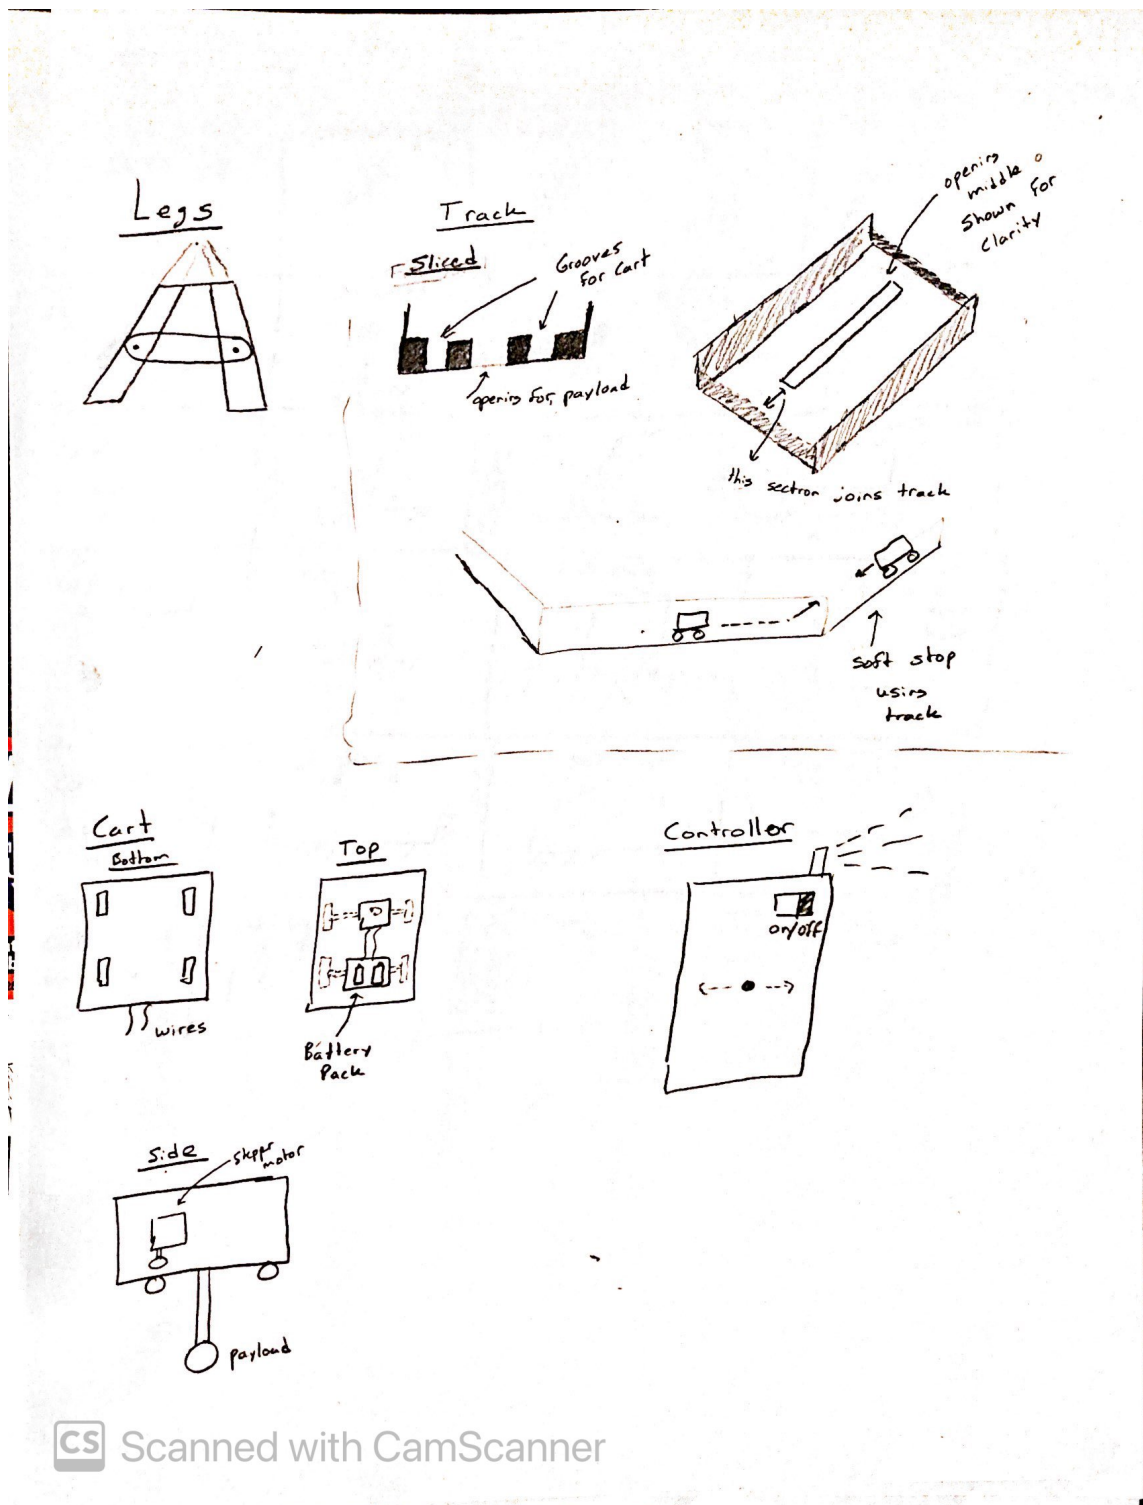 Legs
Track
Sliced
Grooves
for Cart
opening for payload
opening
middle
shown for
clarity
this section joins track
soft stop
using
track
Cart
Bottom
wires
Top
Battery
Pack
Controller
on/off
Side
stepper
motor
payload
CS Scanned with CamScanner